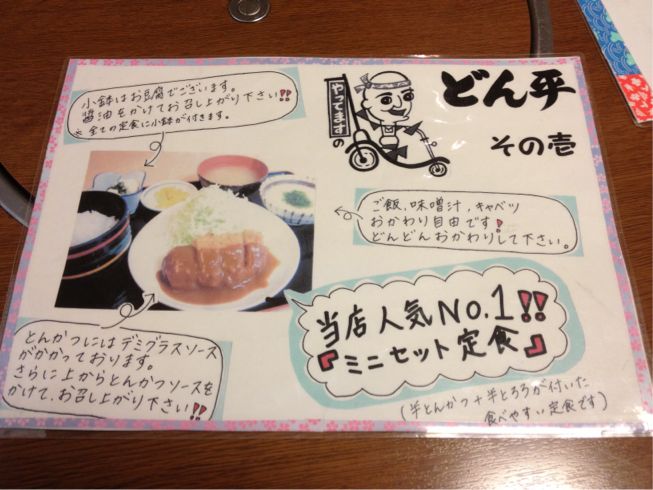 小鉢はお豆腐でございます。
醤油をかけてお召し上がり下さい!!
※全ての定食に小鉢が付きます。
やってますの
どん平
その壱
ご飯、味噌汁、キャベツ
おかわり自由です!
どんどんおかわりして下さい。
とんかつにはデミグラスソース
がかかっております。
さらに上からとんかつソースを
かけて、お召し上がり下さい!!
当店人気No.1!!
『ミニセット定食』
(半とんかつ+半とろろが付いた
食べやすい定食です)